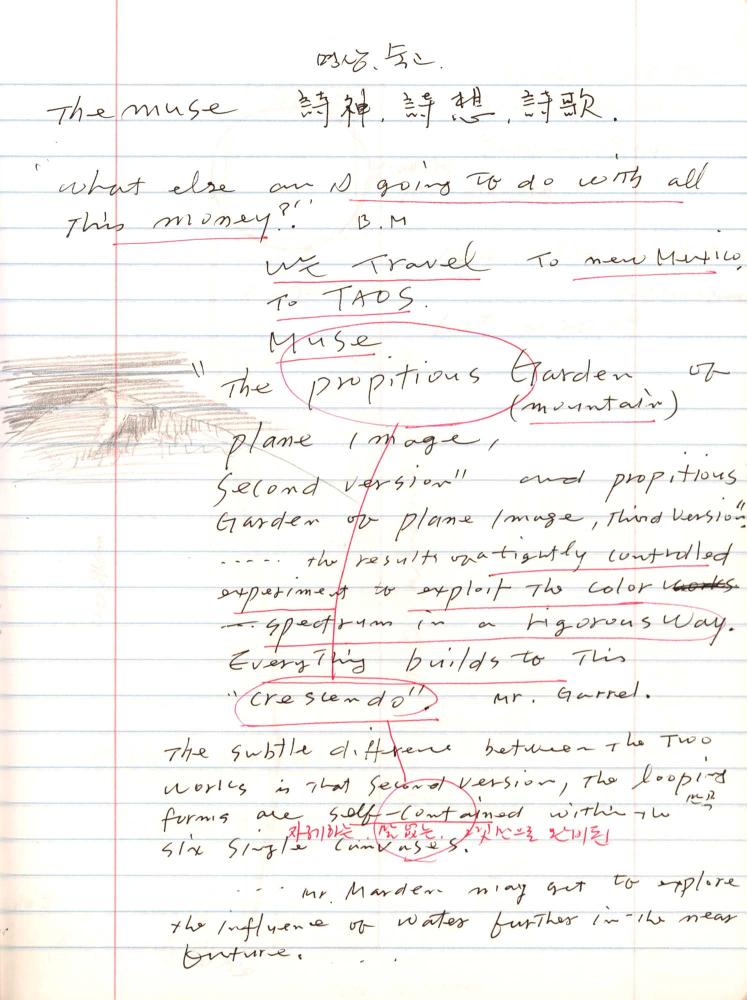 명상, 녹고.
The muse 詩神, 詩想, 詩歌.
"what else am I going to do with all
This money?" B.M
We Travel To new Mexico,
To TAOS.
Muse
"The propitious Garden of
(mountain)
plane Image,
Second version" and propitious
Garden of plane Image, Third Version"
..... the results of a tightly controlled
experiment to exploit The color works
spectrum in a rigorous way.
Everything builds to This
"crescendo". Mr. Garrel.
The subtle difference between The Two
works is That Second Version, The looping
forms are self-contained within the
자제하는, 말없는,
six single canvases.
.... Mr. Marden may get to explore
the influence of water further in the near
future. . .